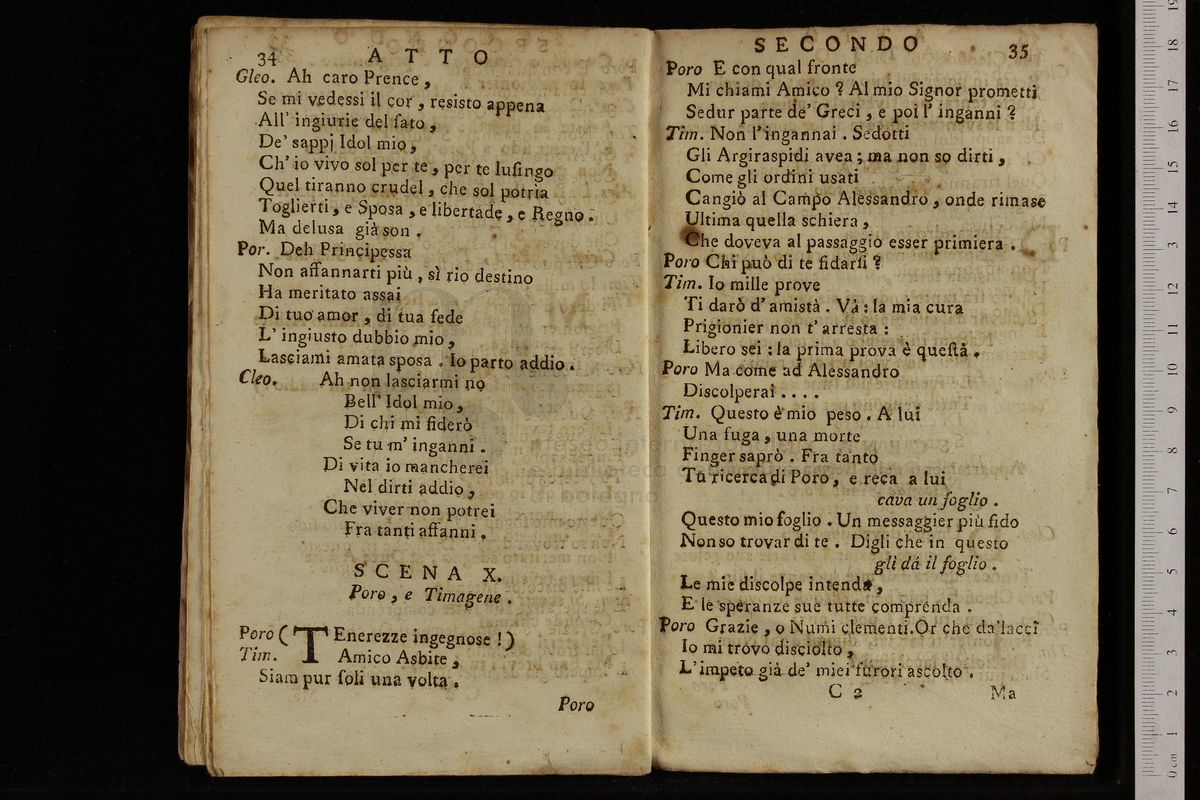 34 ATTO
Gleo. Ah caro Prence,
Se mi vedessi il cor, resisto appena
All' ingiurie del fato,
De' sappi Idol mio,
Ch' io vivo sol per te, per te lusingo
Quel tiranno crudel, che sol potria
Toglierti, e Sposa, e libertade, e Regno.
Ma delusa già son.
Por. Deh Principessa
Non affannarti più, sì rio destino
Ha meritato assai
Di tuo amor, di tua fede
L' ingiusto dubbio mio,
Lasciami amata sposa. Io parto addio.
Cleo. Ah non lasciarmi no
Bell' Idol mio,
Di chi mi fiderò
Se tu m' inganni.
Di vita io mancherei
Nel dirti addio,
Che viver non potrei
Fra tanti affanni.
SCENA X.
Poro, e Timagene.
Poro (TEnerezze ingegnose!)
Tim. Amico Asbite,
Siam pur soli una volta.
Poro
SECONDO 35
Poro E con qual fronte
Mi chiami Amico? Al mio Signor prometti
Sedur parte de' Greci, e poi l' inganni?
Tim. Non l'ingannai. Sedotti
Gli Argiraspidi avea; ma non so dirti,
Come gli ordini usati
Cangiò al Campo Alessandro, onde rimase
Ultima quella schiera,
Che doveva al passaggio esser primiera.
Poro Chi può di te fidarsi?
Tim. Io mille prove
Ti darò d' amistà. Và: la mia cura
Prigionier non t' arresta:
Libero sei: la prima prova è questa.
Poro Ma come ad Alessandro
Discolperai....
Tim. Questo è mio peso. A lui
Una fuga, una morte
Finger saprò. Fra tanto
Tu ricerca di Poro, e reca a lui
cava un foglio.
Questo mio foglio. Un messaggier più fido
Non so trovar di te. Digli che in questo
gli dá il foglio.
Le mie discolpe intenda,
E le speranze sue tutte comprenda.
Poro Grazie, o Numi clementi. Or che da'lacci
Io mi trovo disciolto,
L'impeto già de' miei furori ascolto.
C 2 Ma